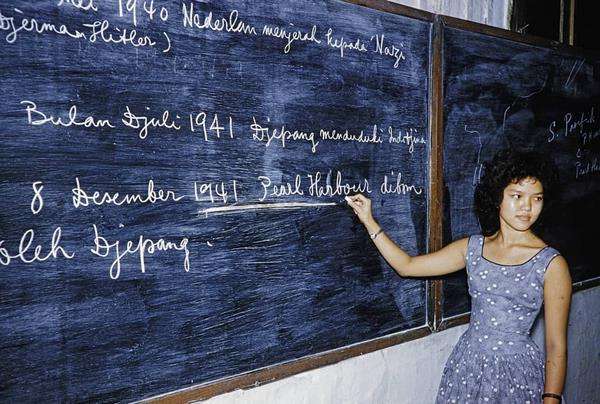 1940 Nederlan menjerah kepada Nazi
Djerman Hitler)
Bulan Djuli 1941 Djepang menduduki Indotjina
8 Desember 1941 Pearl Harbour dibom
oleh Djepang.
S.